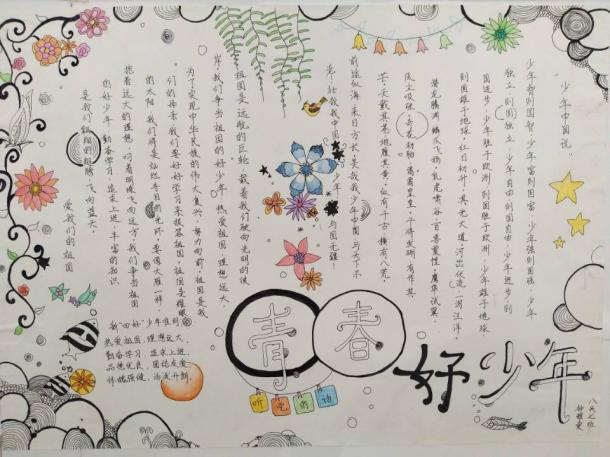 少年中国说。
少年智则国智，少年富则国富，少年强则国强，少年
独立则国独立，少年自由则国自由，少年进步则
国进步，少年胜于欧洲则国胜于欧洲，少年雄于地球
则国雄于地球。红日初升，其光大道；河出伏流，一泻汪洋。
潜龙腾渊，鳞爪飞扬；乳虎啸谷，百兽震惶；鹰隼试翼，
风尘吸张。奇花初胎，矞矞皇皇；干将发硎，有作其
芒。天戴其苍，地履其黄；纵有千古，横有八荒；
前途似海，来日方长。美哉我少年中国，与天不
老！壮哉我中国少年，与国无疆！
祖国是远航的巨轮，载着我们驶向光明的彼
岸，我们争当祖国的好少年，热爱祖国，理想远大，
为了实现中华民族的伟大复兴，努力向前，祖国是我
们的母亲，我们要好好学习来报答祖国，祖国是耀眼
的太阳，我们将是灿烂夺目的光环，要像大雁一样，
抱着远大的理想，向着明媚飞向远方，我们争当祖国
的好少年，勤奋学习，追求上进，丰富的知识
是我们翱翔的翅膀，飞向蓝天。
爱我们的祖国
新“四好”少年准则
热爱祖国，理想远大
勤奋学习，追求上进
品德优良，团结友爱
体魄强健，活泼开朗。
青春
好少年
听党的话
七班